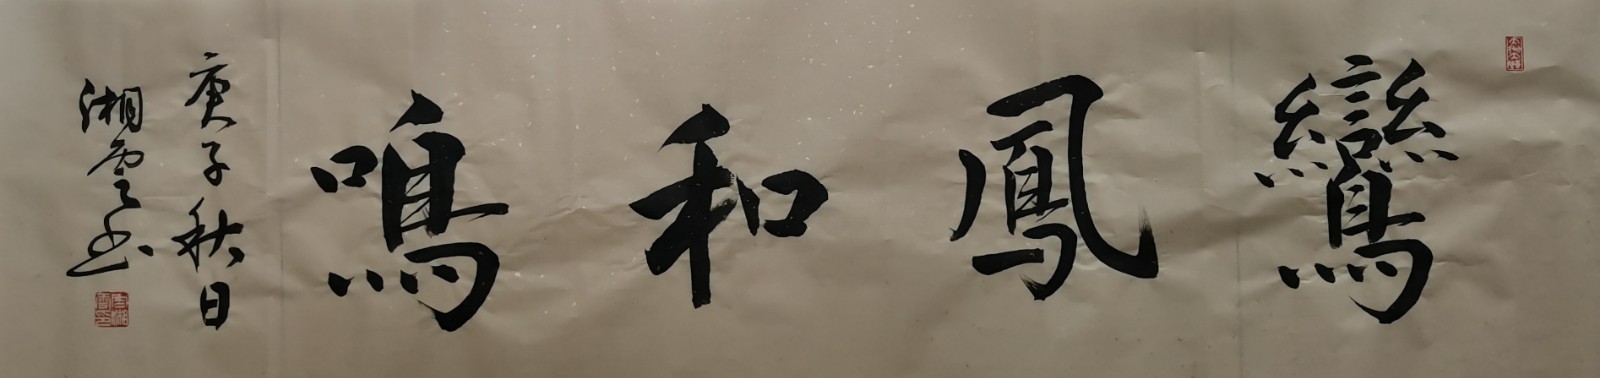 鸞鳳和鳴
庚子秋日
湘雲书